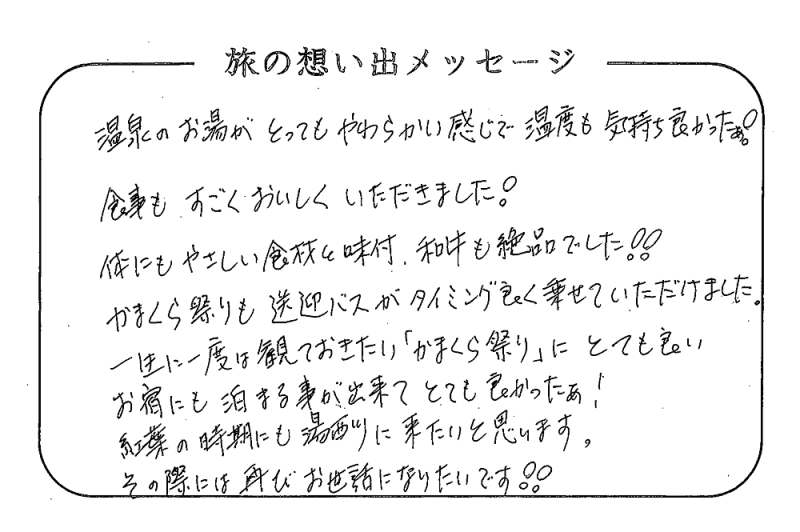 旅の想い出メッセージ
温泉のお湯が とっても やわらかい 感じで 温度も 気持ち良かったぁ!
食事も すごく おいしく いただきました!
体にも やさしい 食材と 味付、和牛も 絶品でした!!
かまくら祭りも 送迎バスが タイミング良く 乗せていただけました。
一生に一度は 観ておきたい「かまくら祭り」に とても良い
お宿にも 泊まる事が出来て とても 良かったぁ!
紅葉の時期にも 湯西川に 来たいと思います。
その際には 再び お世話になりたいです!!